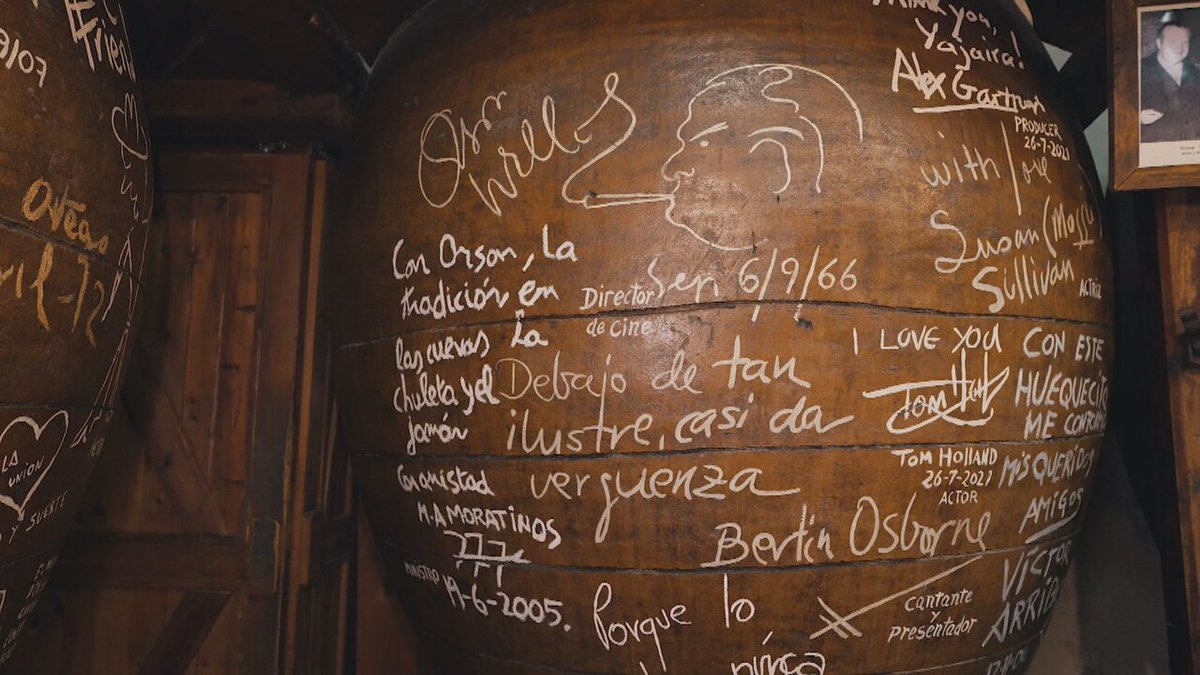 Friend
Otras
Abril-72
LA
UNION
Y SUERTE
Orson Welles
Sep 6/9/66
Director
de Cine
Con Orson, la
tradición en
las cuevas la
chuleta y el
jamón
Conquistad
M.A MORATINOS
MINISTRO 19-6-2005.
Debajo de tan
ilustre, casi da
verguenza
Bertin Osborne
cantante
y
presentador
Porque lo
THANK you,
Yajaira!
Alex Gartman
PRODUCER
26-7-2021
with love
Susan (Mossy)
Sullivan ACTRIZ
I LOVE YOU
TOM HOLLAND
26-7-2021
ACTOR
CON ESTE
HUEQUECITO
ME CONFORMO
MIS QUERIDOS
AMIGOS
VICTOR